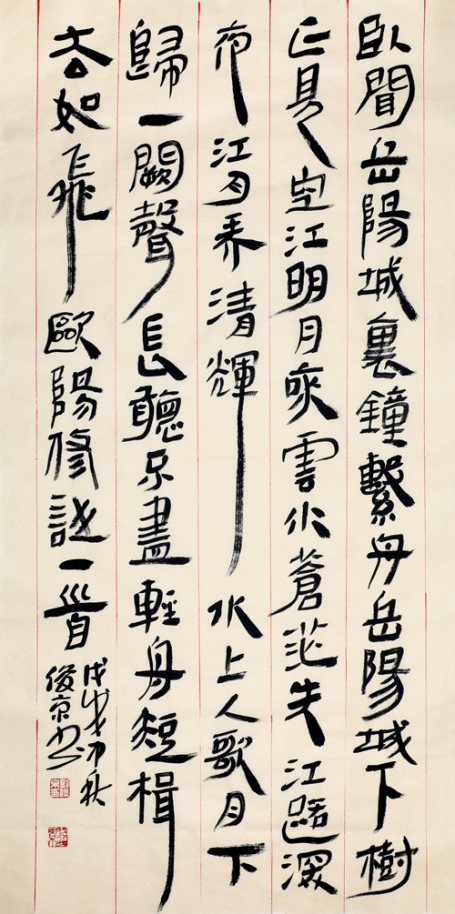 臥聞岳陽城裏鐘繫舟岳陽城下樹
正見空江明月來雲水蒼茫失江路深
夜江月弄清輝水上人歌月下
歸一闋聲長聽不盡輕舟短楫
去如飛歐陽修詩一首
戊戌初秋
俊京书